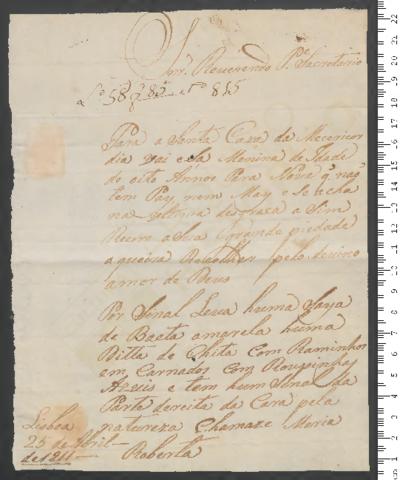 Snr. Reverendo Pe. Secretario
Lo 58 gr 85 e no 815
Para a Santa Caza da Mezericor
dia vai esta Menina de Idade
de oito Annos Para Nove q. não
tem Pay nem May e se acha
na ultima desgrasa a Sim
Recorro a Sua Grande piedade
a queira Recolher pelo devino
amor de Deus
Por Sinal Leva huma Saya
de Baeta amarela huma
de Chita Com Raminhos
em Carnados Com
Azuis e tem hum Sinal da
Parte dereita da Cara pela
natureza Chamaze Maria
Roberta
Lisboa
25 de Abril
de 1811